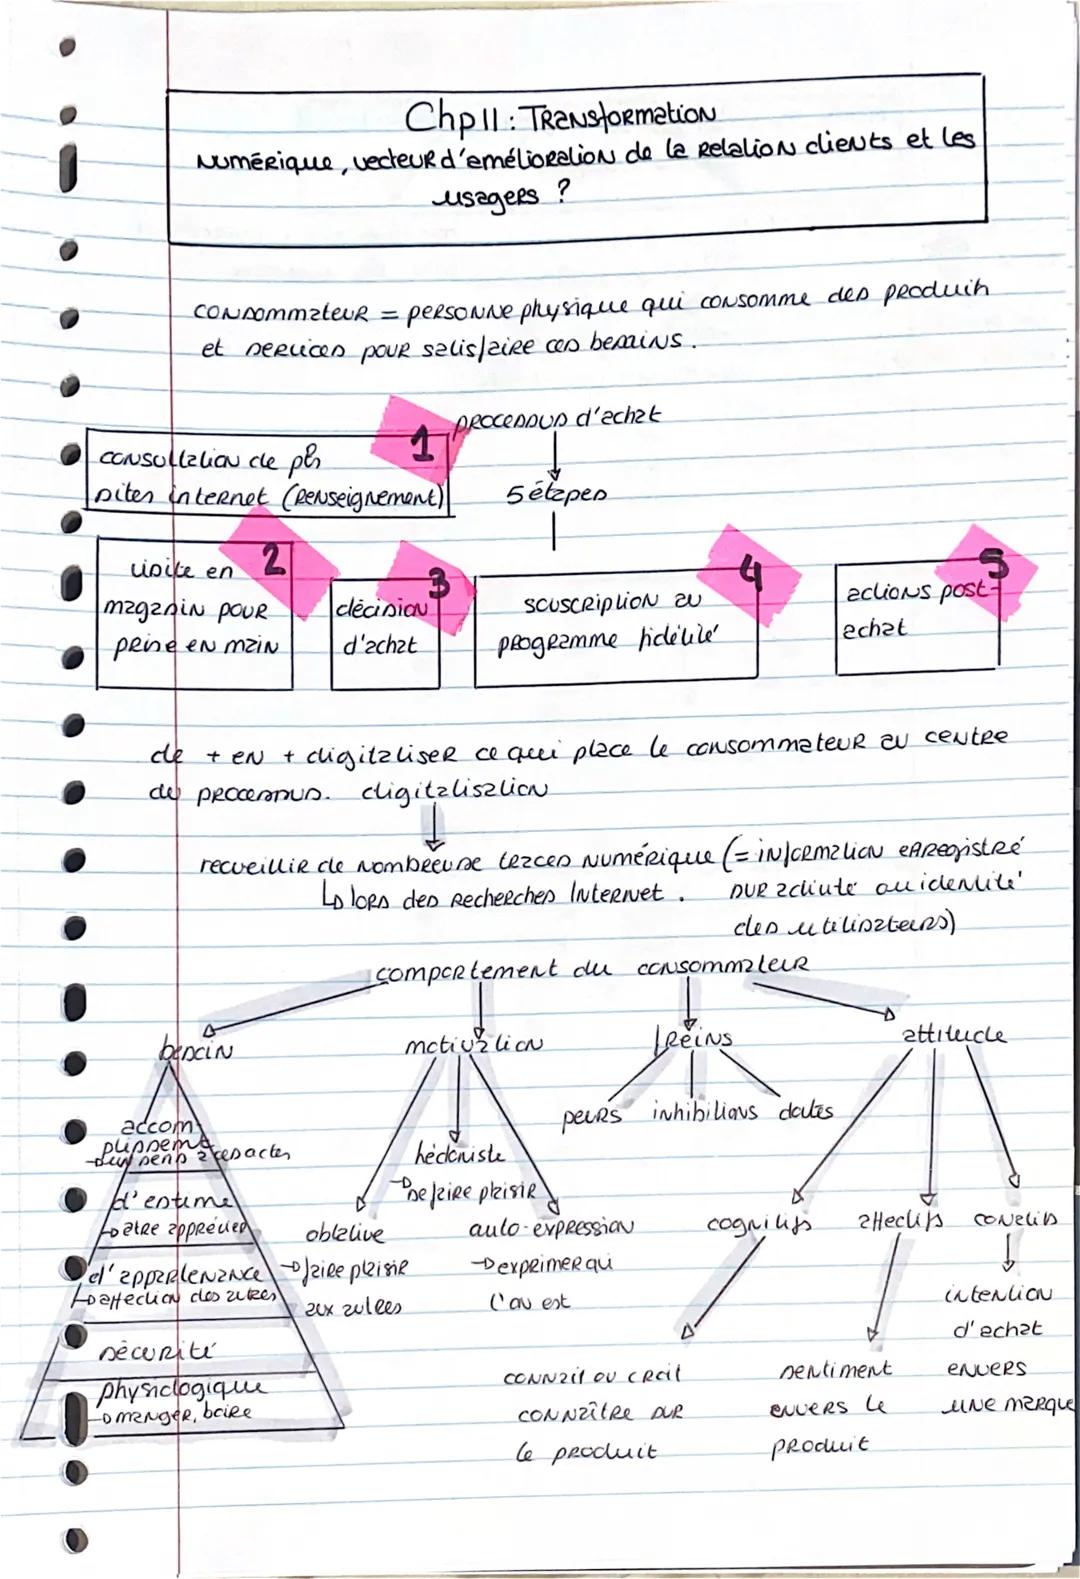 Chp 11 : Transformation
numérique, vecteur d'amélioration de la relation clients et les
usagers ?
consommateur = personne physique qui consomme des produits
et services pour satisfaire ces besoins.
processus d'achat
5 étapes
1
consultation de pls
sites internet (renseignement)
2
visite en
magasin pour
prise en main
3
décision
d'achat
4
souscription au
programme fidélité
5
actions post-
achat
de + en + digitaliser ce qui place le consommateur au centre
du processus. digitalisation
recueillir de nombreuse traces numérique (= information enregistré
↳ lors des recherches Internet. sur activité ou identité
des utilisateurs)
comportement du consommateur
besoin
motivation
freins
attitude
accom-
plissement
→ du sens à ces actes
d'estime
→ être apprécier
d'appartenance
→ affection des autres
sécurité
physiologique
→ manger, boire
hédoniste
→ se faire plaisir
oblative
→ faire plaisir
aux autres
auto-expression
→ exprimer qui
l'on est
peurs inhibitions doutes
cognitifs affectifs conatifs
connait ou croit
connaître sur
le produit
sentiment
envers le
produit
intention
d'achat
envers
une marque